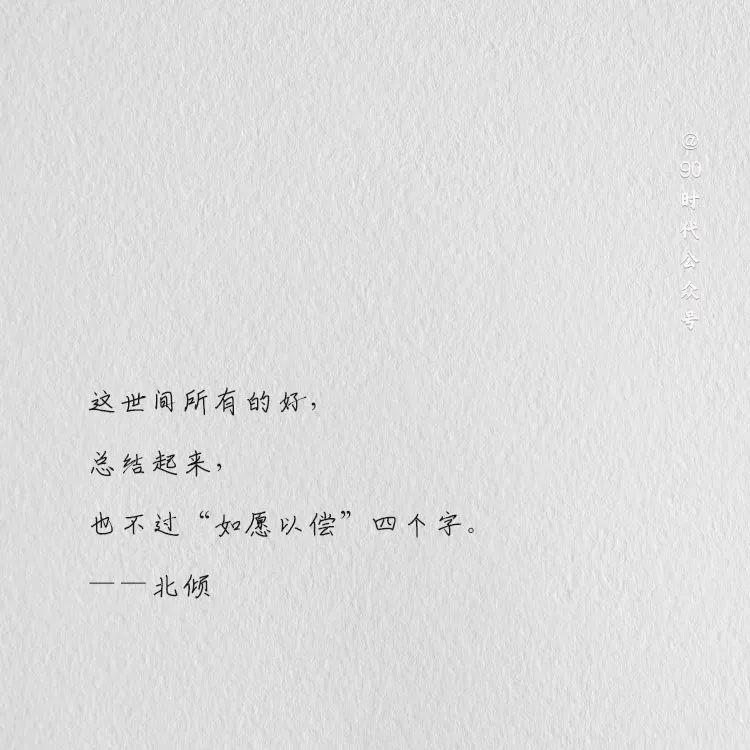 @90时代公众号
这世间所有的好，
总结起来，
也不过“如愿以偿”四个字。
——北倾